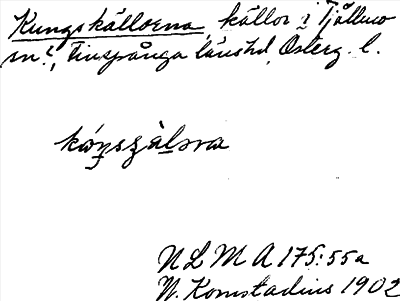 Kungskällorna, källor i Tjällmo
sn, Finspånga länshd, Österg. l.
NLM A 175:55a
N. Komstadius 1902